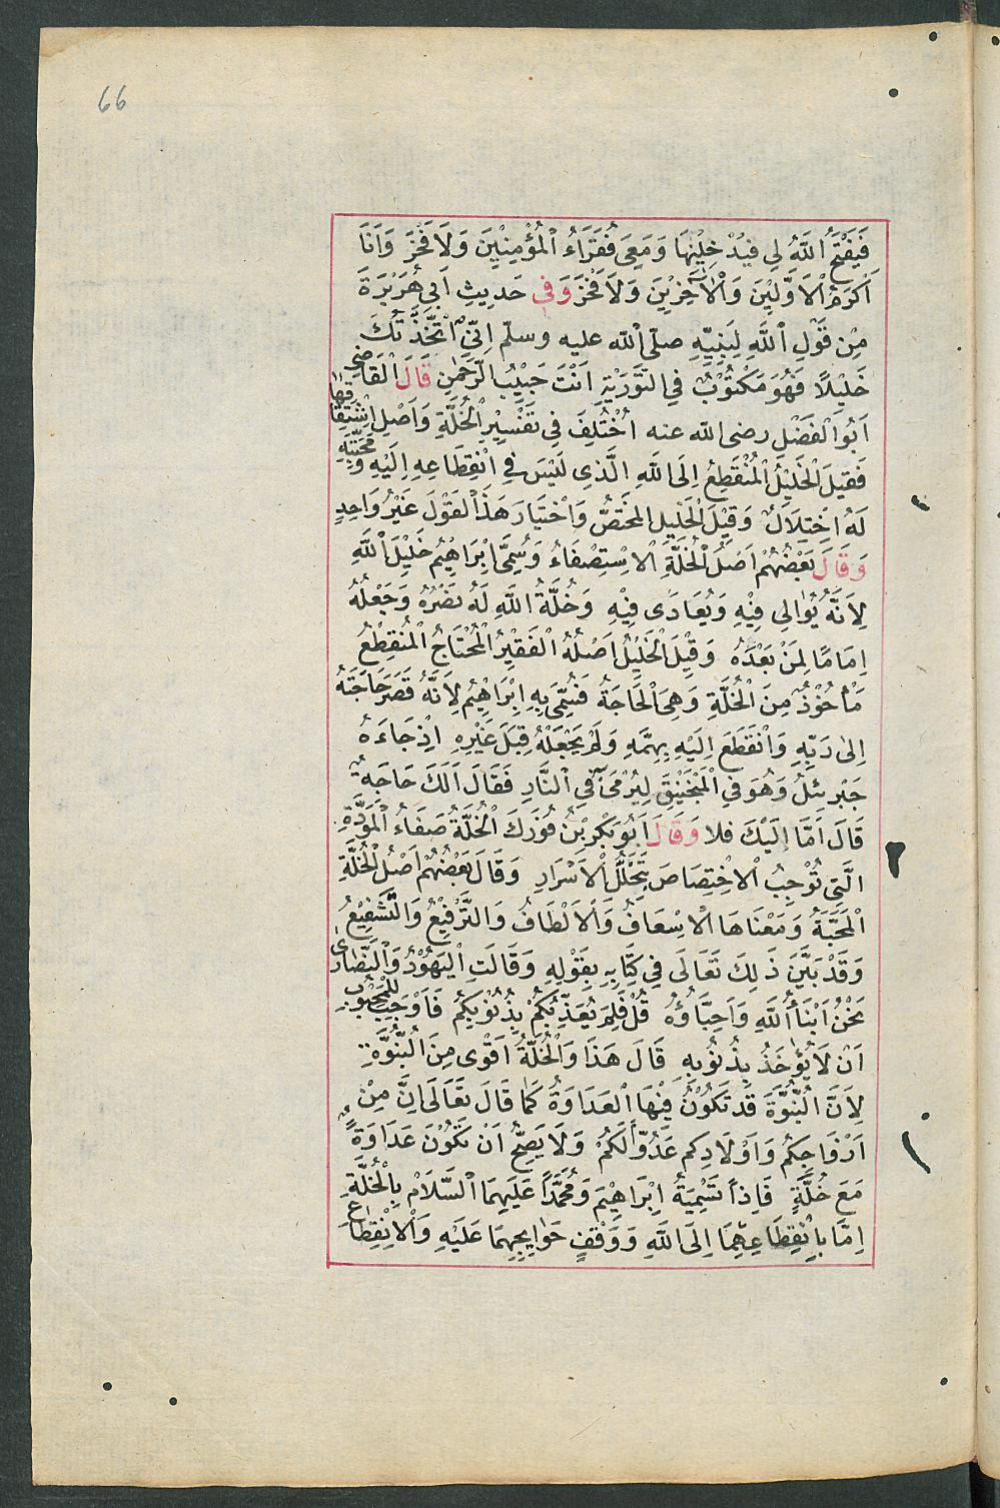 66
فَيَفْتَحُ اللّٰهُ لِي فَيُدْخِلُنِيهَا وَمَعِيَ فُقَرَاءُ الْمُؤْمِنِينَ وَلَا فَخْرَ وَاَنَا
اَكْرَمُ الْاَوَّلِينَ وَالْاٰخِرِينَ وَلَا فَخْرَ وَفِي حَدِيثِ اَبِي هُرَيْرَةَ
مِنْ قَوْلِ اللّٰهِ لِنَبِيِّهِ صلّى اللّٰه عليه وسلّم اِنِّي اتَّخَذْتُكَ
خَلِيْلًا فَهُوَ مَكْتُوْبٌ فِي التَّوْرٰيةِ اَنْتَ حَبِيْبُ الرَّحْمٰنِ قَالَ الْقَاضِي
اَبُو الْفَضْلِ رضى اللّٰه عنه اُخْتُلِفَ فِي تَفْسِيْرِ الْخُلَّةِ وَاَصْلِ اشْتِقَاقِهَا
فَقِيلَ الْخَلِيْلُ الْمُنْقَطِعُ اِلَى اللّٰهِ الَّذِى لَيْسَ فِي انْقِطَاعِهِ اِلَيْهِ وَمَحَبَّتِهِ
لَهُ اخْتِلَالٌ وَقِيْلَ الْخَلِيل المختَصُّ وَاخْتَارَ هَذَا الْقَوْلَ غَيْرُ وَاحِدٍ
وَقَالَ بَعْضُهُمْ اَصْلُ الْخُلَّةِ الْاسْتِصْفَاءُ وَسُمِّيَ اِبْرَاهِيْمُ خَلِيْلَ اللّٰهِ
لِاَنَّهُ يُوَالِي فِيْهِ وَيُعَادَى فِيْهِ وَخُلَّةُ اللّٰهِ لَهُ نَصْرُهُ وَجَعْلُهُ
اِمَامًا لِمَنْ بَعْدَهُ وَقِيْلَ الْخَلِيْلُ اَصْلُهُ الْفَقِيْرُ الْمُحْتَاجُ الْمُنْقَطِعُ
مَأْخُوْذٌ مِنَ الْخُلَّةِ وَهِيَ الْحَاجَةُ فَسُمِّيَ بِهِ اِبْرَاهِيْمُ لِاَنَّهُ قَصَرَ حَاجَتَهُ
اِلٰى رَبِّهِ وَانْقَطَعَ اِلَيْهِ بِهِمَّهِ وَلَمْ يَجْعَلْهُ قِبَلَ غَيْرِهِ اِذْ جَاءَهُ
جَبْرئلُ وَهُوَ فِي الْمَنْجَنِيْقِ لِيُرْمَى فِي النَّارِ فَقَالَ اَلَكَ حَاجَةٌ
قَالَ اَمَّا اِلَيْكَ فلا وَقَالَ اَبُو بَكْرِ بْنُ فُوْرَكَ الْخُلَّةُ صَفَاءُ الْمَوَدَّةِ
الَّتِى تُوْجِبُ الْاخْتِصَاصَ بِتَخَلُّلِ الْاَسْرَارِ وَقَالَ بَعْضُهُمْ اَصْلُ الْخُلَّةِ
الْمَحَبَّةُ وَمَعْنَاهَا الْاسْعَافُ وَالْاَلْطَافُ وَالتَّرْفِيْعُ وَالتَّشْفِيْعُ
وَقَدْ بَيَّنَ ذَلِكَ تَعَالَى فِي كِتَابِهِ بِقَوْلِهِ وَقَالَتِ الْيَهُوْدُ وَالنَّصَارٰى
نَحْنُ اَبْنَاءُ اللّٰهِ وَاَحِبَّاؤُهُ قُلْ فَلِمَ يُعَذِّبُكُمْ بِذُنُوْبِكُمْ فَاَوْجَبَ لِلْمَحْبُوْبِ
اَنْ لَا يُؤَاخَذُ بِذُنُوْبِهِ قَالَ هَذَا وَالْخُلَّةُ اَقْوٰى مِنَ الْبُنُوَّةِ
لِاَنَّ الْبُنُوَّةَ قَدْ تَكُوْنُ فِيْهَا الْعَدَاوَةُ كَمَا قَالَ تَعَالَى اِنَّ مِنْ
اَزْوَاجِكُمْ وَاَوْلَادِكم عَدُوًّا لَكُمْ وَلَا يَصِحُّ اَنْ تَكُوْنَ عَدَاوَةٌ
مَعَ خُلَّةٍ فَاِذًا تَسْمِيَةُ اِبْرَاهِيْمَ وَمُحَمَّدًا عَلَيْهِمَا السَّلَامُ بِالْخُلَّةِ
اِمَّا بِانْقِطَاعِهِمَا اِلَى اللّٰهِ وَوَقْفِ حَوَايِجِهِمَا عَلَيْهِ وَالْانْقِطَاعِ